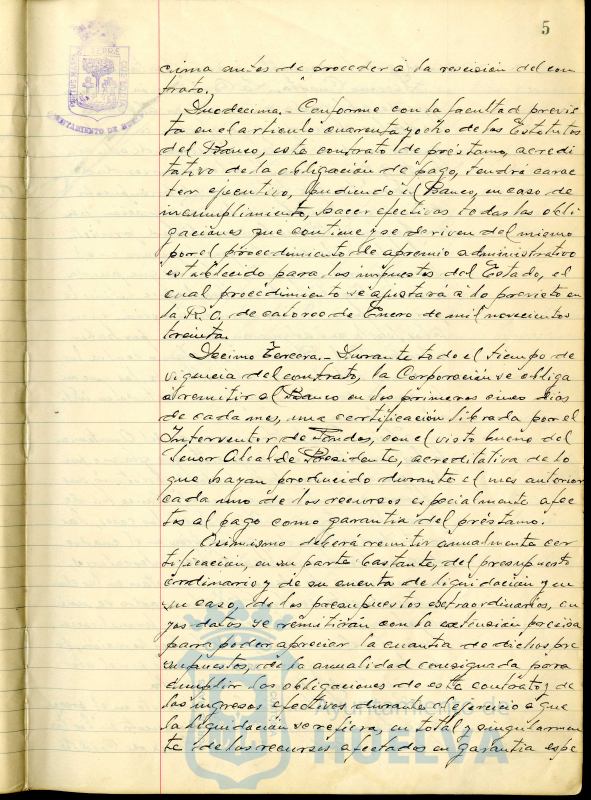 5
cima antes de proceder á la rescisión del con
trato.
Duodecima.- Conforme con la facultad previs
ta en el artículo cuarenta y ocho de los Estatutos
del Banco, este contrato de préstamo, acredi
tativo de la obligación de pago, tendrá carac
ter ejecutivo, pudiendo el Banco, en caso de
incumplimiento, hacer efectivas todas las obli
gaciones que contiene y se deriven del mismo
por el procedimiento de apremio administrativo
establecido para los impuestos del Estado, el
cual procedimiento se ajustará á lo previsto en
la R.O. de catorce de Enero de mil novecientos
treinta.
Decimo Tercera.- Durante todo el tiempo de
vigencia del contrato, la Corporación se obliga
a remitir al Banco en los primeros cinco dias
de cada mes, una certificación librada por el
Interventor de Fondos, con el visto bueno del
Señor Alcalde Presidente, acreditativa de lo
que hayan producido durante el mes anterior
cada uno de los recursos especialmente afec
tos al pago como garantia del préstamo.
Asimismo deberá remitir anualmente cer
tificación, en su parte bastante, del presupuesto
ordinario y de su cuenta de liquidación y en
su caso, de los presupuestos extraordinarios, cu
yos datos se remitirán con la extensión precisa
para poder apreciar la cuantia de dichos pre
supuestos, de la anualidad consignada para
cumplir las obligaciones de este contrato y de
los ingresos efectivos durante el ejercicio a que
la liquidación se refiera, en total y singularmen
te de los recursos afectados en garantia espe
AYUNTAMIENTO DE HUELVA
Ayuntamiento de
HUELVA